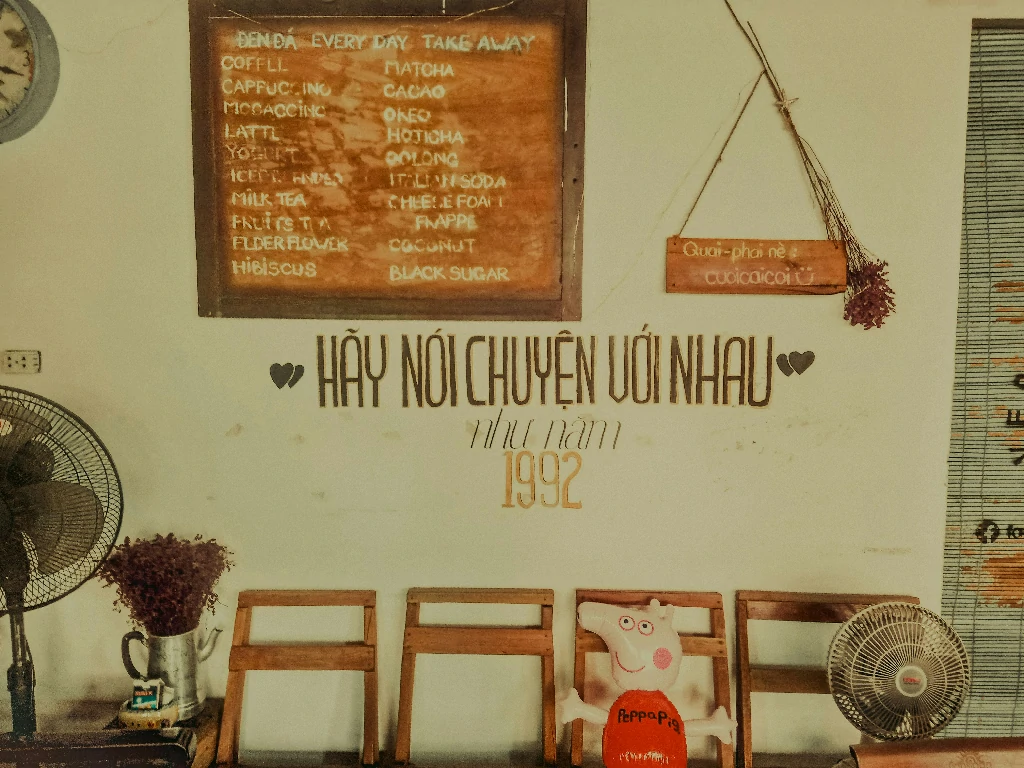 ĐEN ĐÁ EVERY DAY TAKE AWAY
COFFEE
CAPPUCCINO
MOCACCINO
LATTE
YOGURT
MILK TEA
FRUITS TEA
ELDERFLOWER
HIBISCUS
MATCHA
CACAO
OREO
HOJICHA
OOLONG
ITALIAN SODA
CHEESE FOAM
FRAPPE
COCONUT
BLACK SUGAR
Quai-phai nè :
cuoicaicoi
HÃY NÓI CHUYỆN VỚI NHAU
như năm
1992
PEPPA PIG